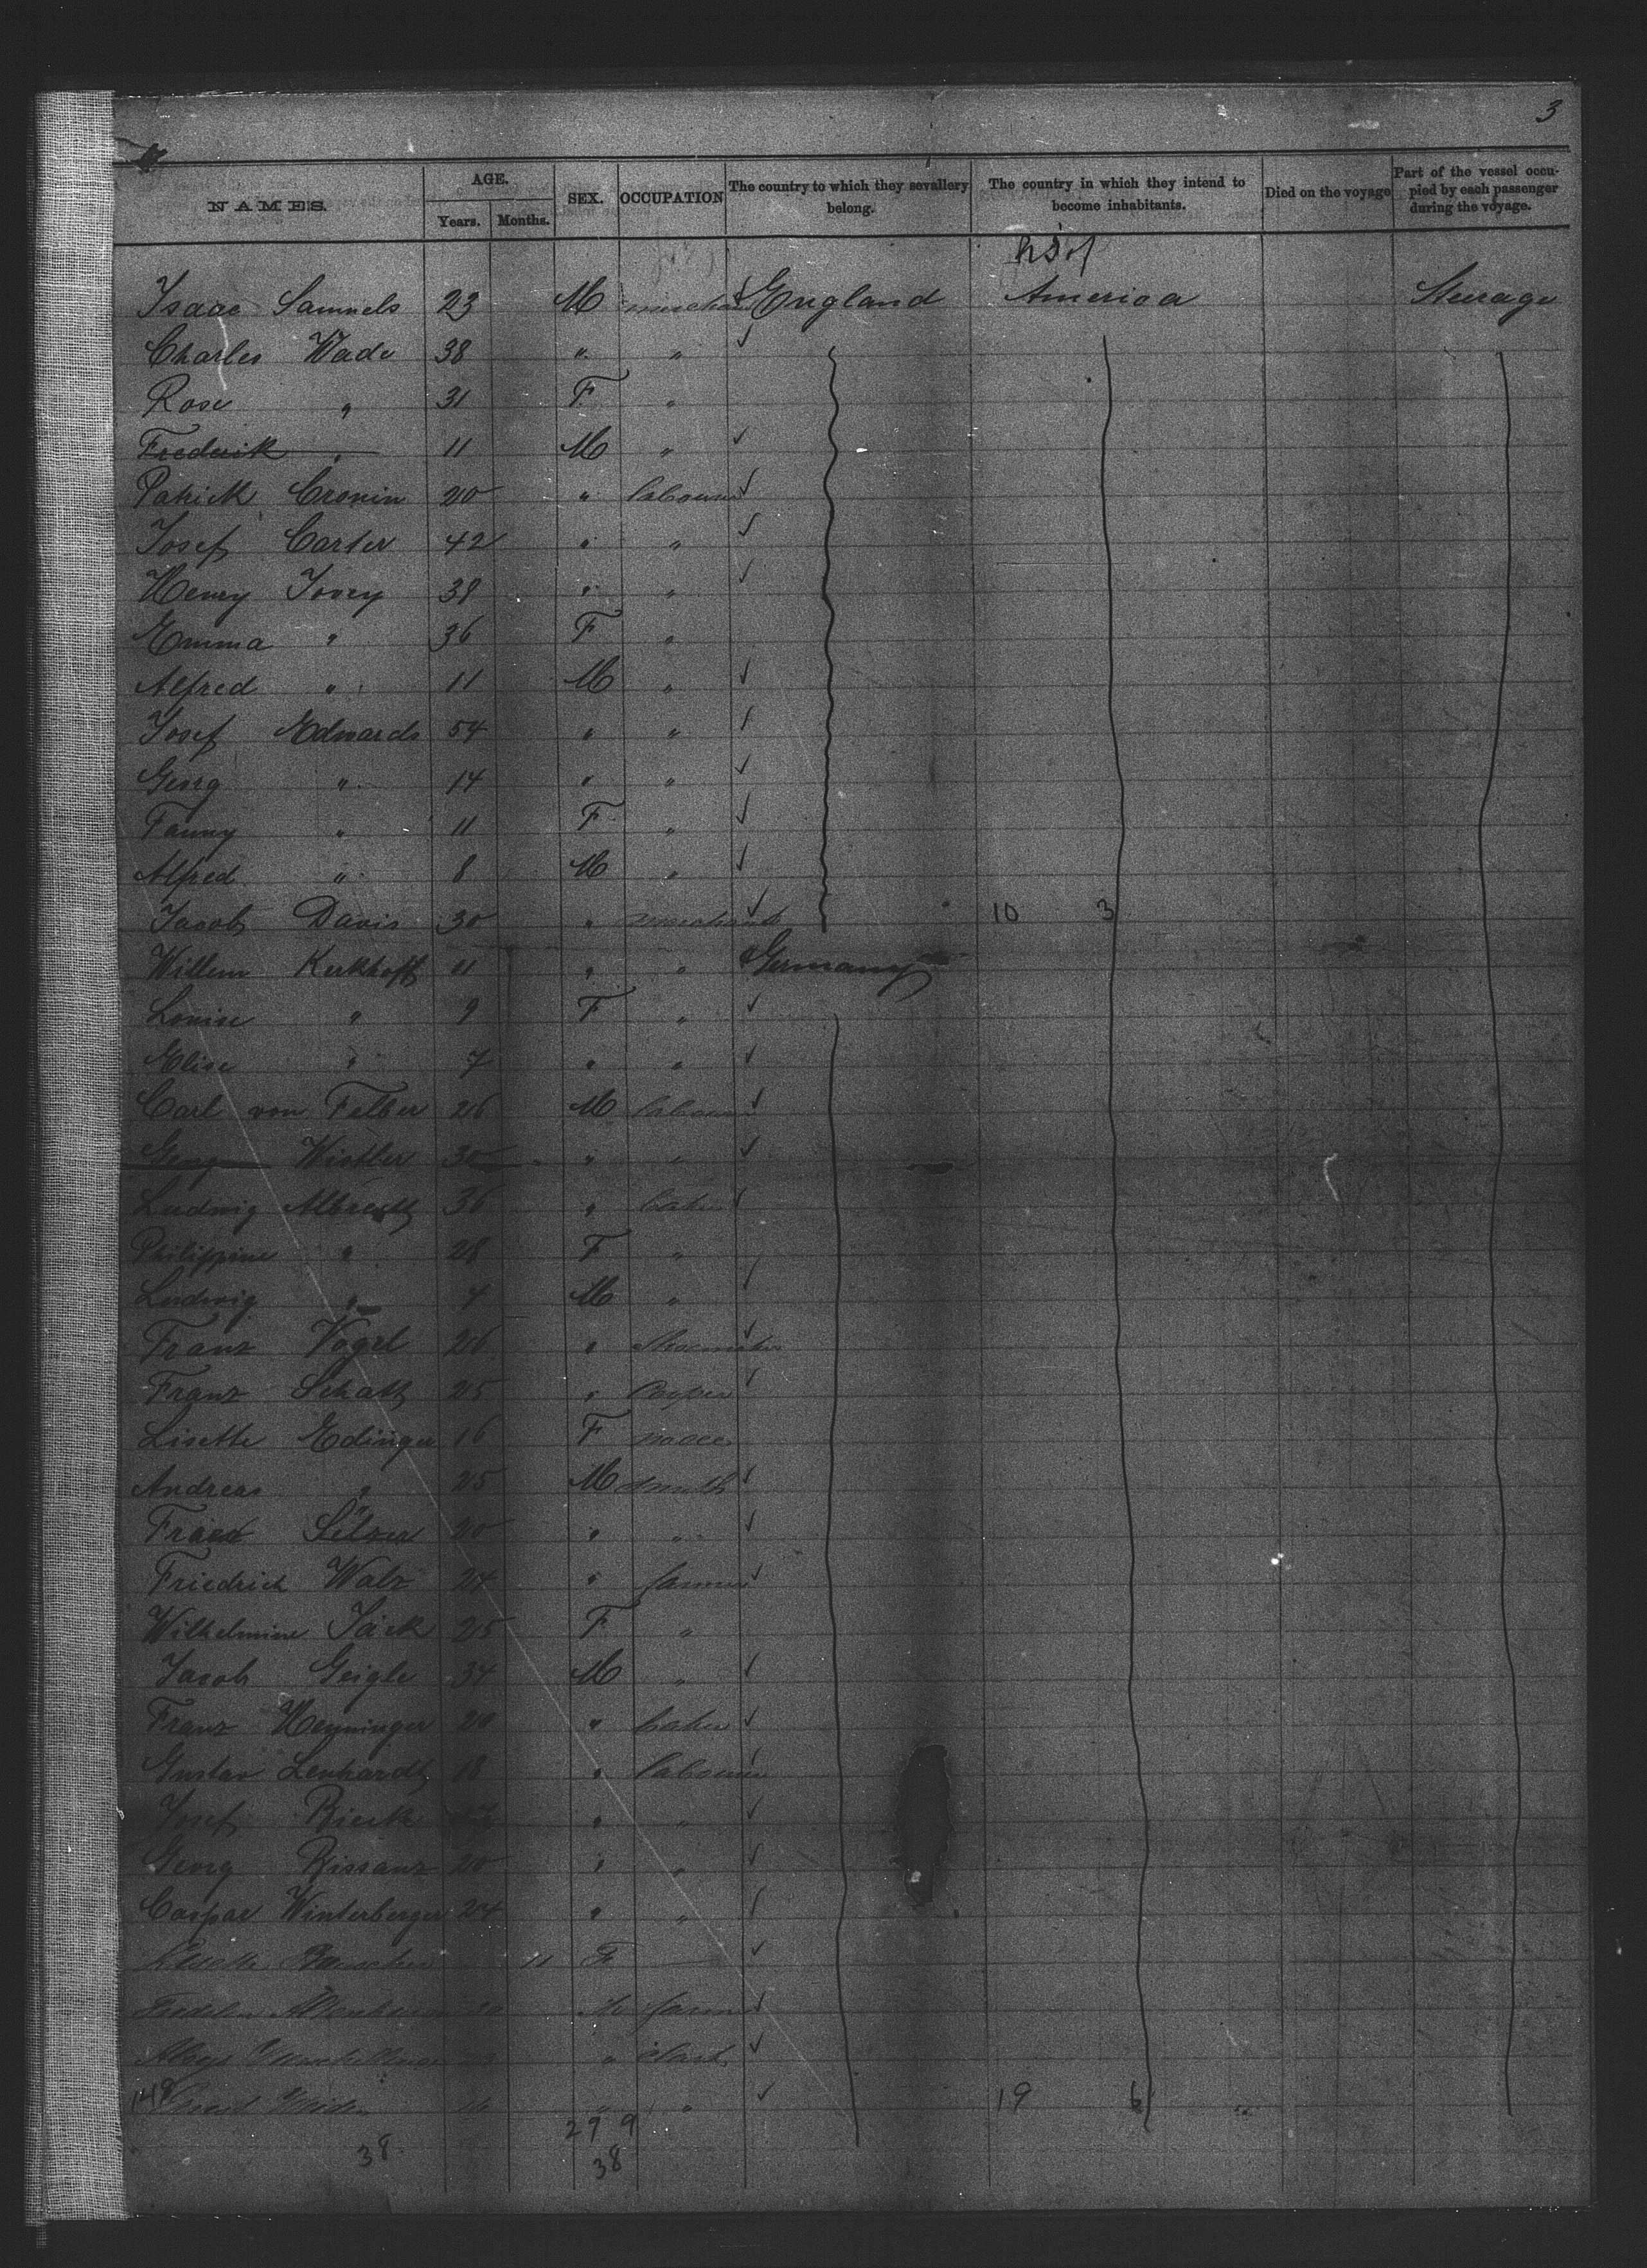 3
NAMES. AGE. Years. Months. SEX. OCCUPATION The country to which they sevallery belong. The country in which they intend to become inhabitants. Died on the voyage Part of the vessel occupied by each passenger during the voyage.
Isaac Samuels 23 M England America Steerage
Charles Wade 38 " "
Rose " 31 F "
Frederik " 11 M "
Patrick Cronin 20 " labourer
Josef Carter 42 " "
Henry Jovey 38 " "
Emma " 36 F "
Alfred " 11 M "
Josef Edwards 54 " "
Georg " 14 " "
Fanny " 11 F "
Alfred " 8 M "
Jacob Davis 30 " merchant 10 3
Willem Kerkhoff 11 " " Germany
Louise " 9 F "
Elise " 7 " "
Carl von Felber 26 M labourer
Georg Wistler 30 " "
Ludwig Albrecht 36 " baker
Philippine " 28 F "
Ludwig " 4 M "
Franz Vogel 26 " Shoemaker
Franz Schatt 25 "
Lisette Edinger 16 F
Andreas " 25 M smith
20 " "
Friedrich Walz 24 " farmer
Wilhelmine Jäck 25 F "
Jacob Geigle 34 M "
Franz Henninger 20 " baker
Gustav Lenhardt 18 " labourer
Josef Rieck " "
Georg Rissanz 20 " "
Caspar Winterberger 24 " "
11 F
M farm
" clerk
" " 19 6
38 29 9
38